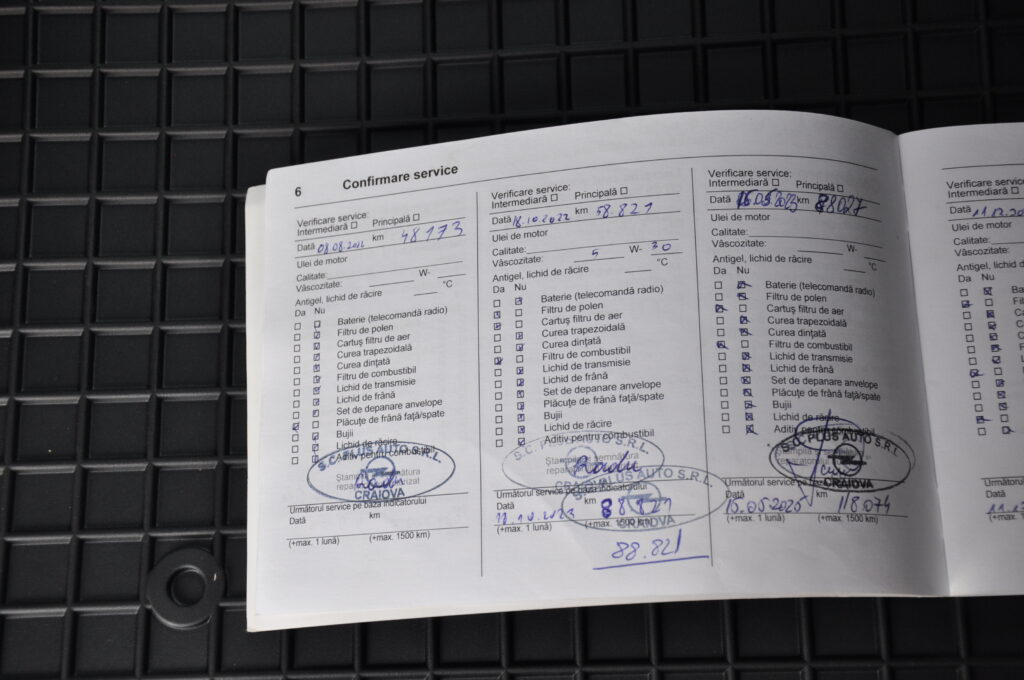 6 Confirmare service
Verificare service:
Intermediară ☐ Principală ☐
Dată 08.08.2022 km 48173
Ulei de motor
Calitate:
Vâscozitate: W-
Antigel, lichid de răcire °C
Da Nu
Baterie (telecomandă radio)
Filtru de polen
Cartuş filtru de aer
Curea trapezoidală
Curea dinţată
Filtru de combustibil
Lichid de transmisie
Lichid de frână
Set de depanare anvelope
Plăcuţe de frână faţă/spate
Bujii
Lichid de răcire
Aditiv pentru combustibil
S.C. PLUS AUTO S.R.L.
CRAIOVA
Următorul service pe baza indicatorului
Dată km
(+max. 1 lună) (+max. 1500 km)
Verificare service:
Intermediară ☐ Principală ☐
Dată 18.10.2022 km 58.821
Ulei de motor
Calitate:
Vâscozitate: 5 W- 30
Antigel, lichid de răcire °C
Da Nu
Baterie (telecomandă radio)
Filtru de polen
Cartuş filtru de aer
Curea trapezoidală
Curea dinţată
Filtru de combustibil
Lichid de transmisie
Lichid de frână
Set de depanare anvelope
Plăcuţe de frână faţă/spate
Bujii
Lichid de răcire
Aditiv pentru combustibil
Ştampila şi semnătura
Radu
S.C. PLUS AUTO S.R.L.
CRAIOVA
Următorul service pe baza indicatorului
Dată km
(+max. 1 lună) (+max. 1500 km)
88.821
Verificare service:
Intermediară ☐ Principală ☐
Dată 16.05.2023 km 88027
Ulei de motor
Calitate:
Vâscozitate: W-
Antigel, lichid de răcire °C
Da Nu
Baterie (telecomandă radio)
Filtru de polen
Cartuş filtru de aer
Curea trapezoidală
Curea dinţată
Filtru de combustibil
Lichid de transmisie
Lichid de frână
Set de depanare anvelope
Plăcuţe de frână faţă/spate
Bujii
Lichid de răcire
Aditiv pentru combustibil
S.C. PLUS AUTO S.R.L.
CRAIOVA
Următorul service pe baza indicatorului
Dată km
15.05.2025 118074
(+max. 1 lună) (+max. 1500 km)
Verificare service:
Intermediară ☐
Dată
Ulei de motor
Calitate:
Vâscozitate:
Antigel, lichid de
Da Nu
Următorul
Dată
(+max.